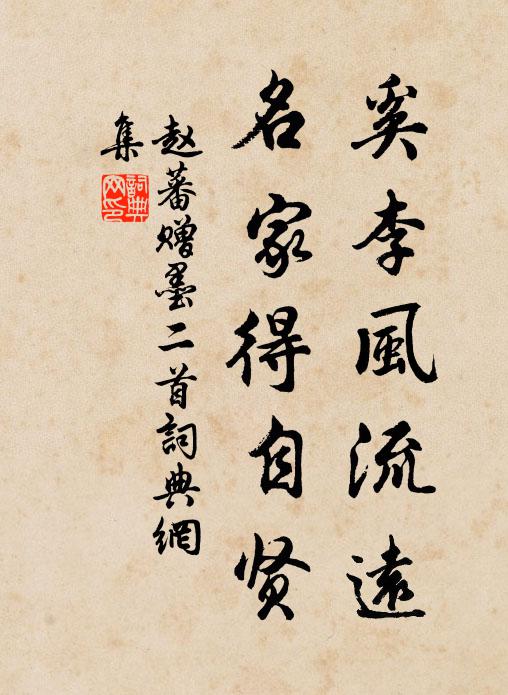 奚李風流遠
名家得自贤
赵蕃赠墨二首詞典網
集
詞典网印